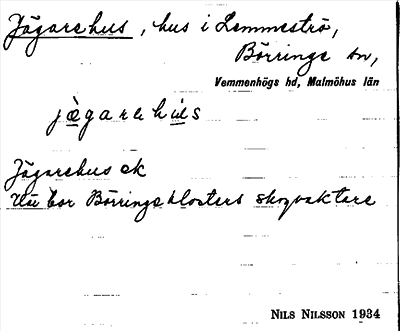 Jägarehus, hus i Lemmeströ,
Börringe sn,
Vemmenhögs hd, Malmöhus län
jägarehus
Jägarehus ek
Nu bor Börringeklosters skogvaktare
NILS NILSSON 1934